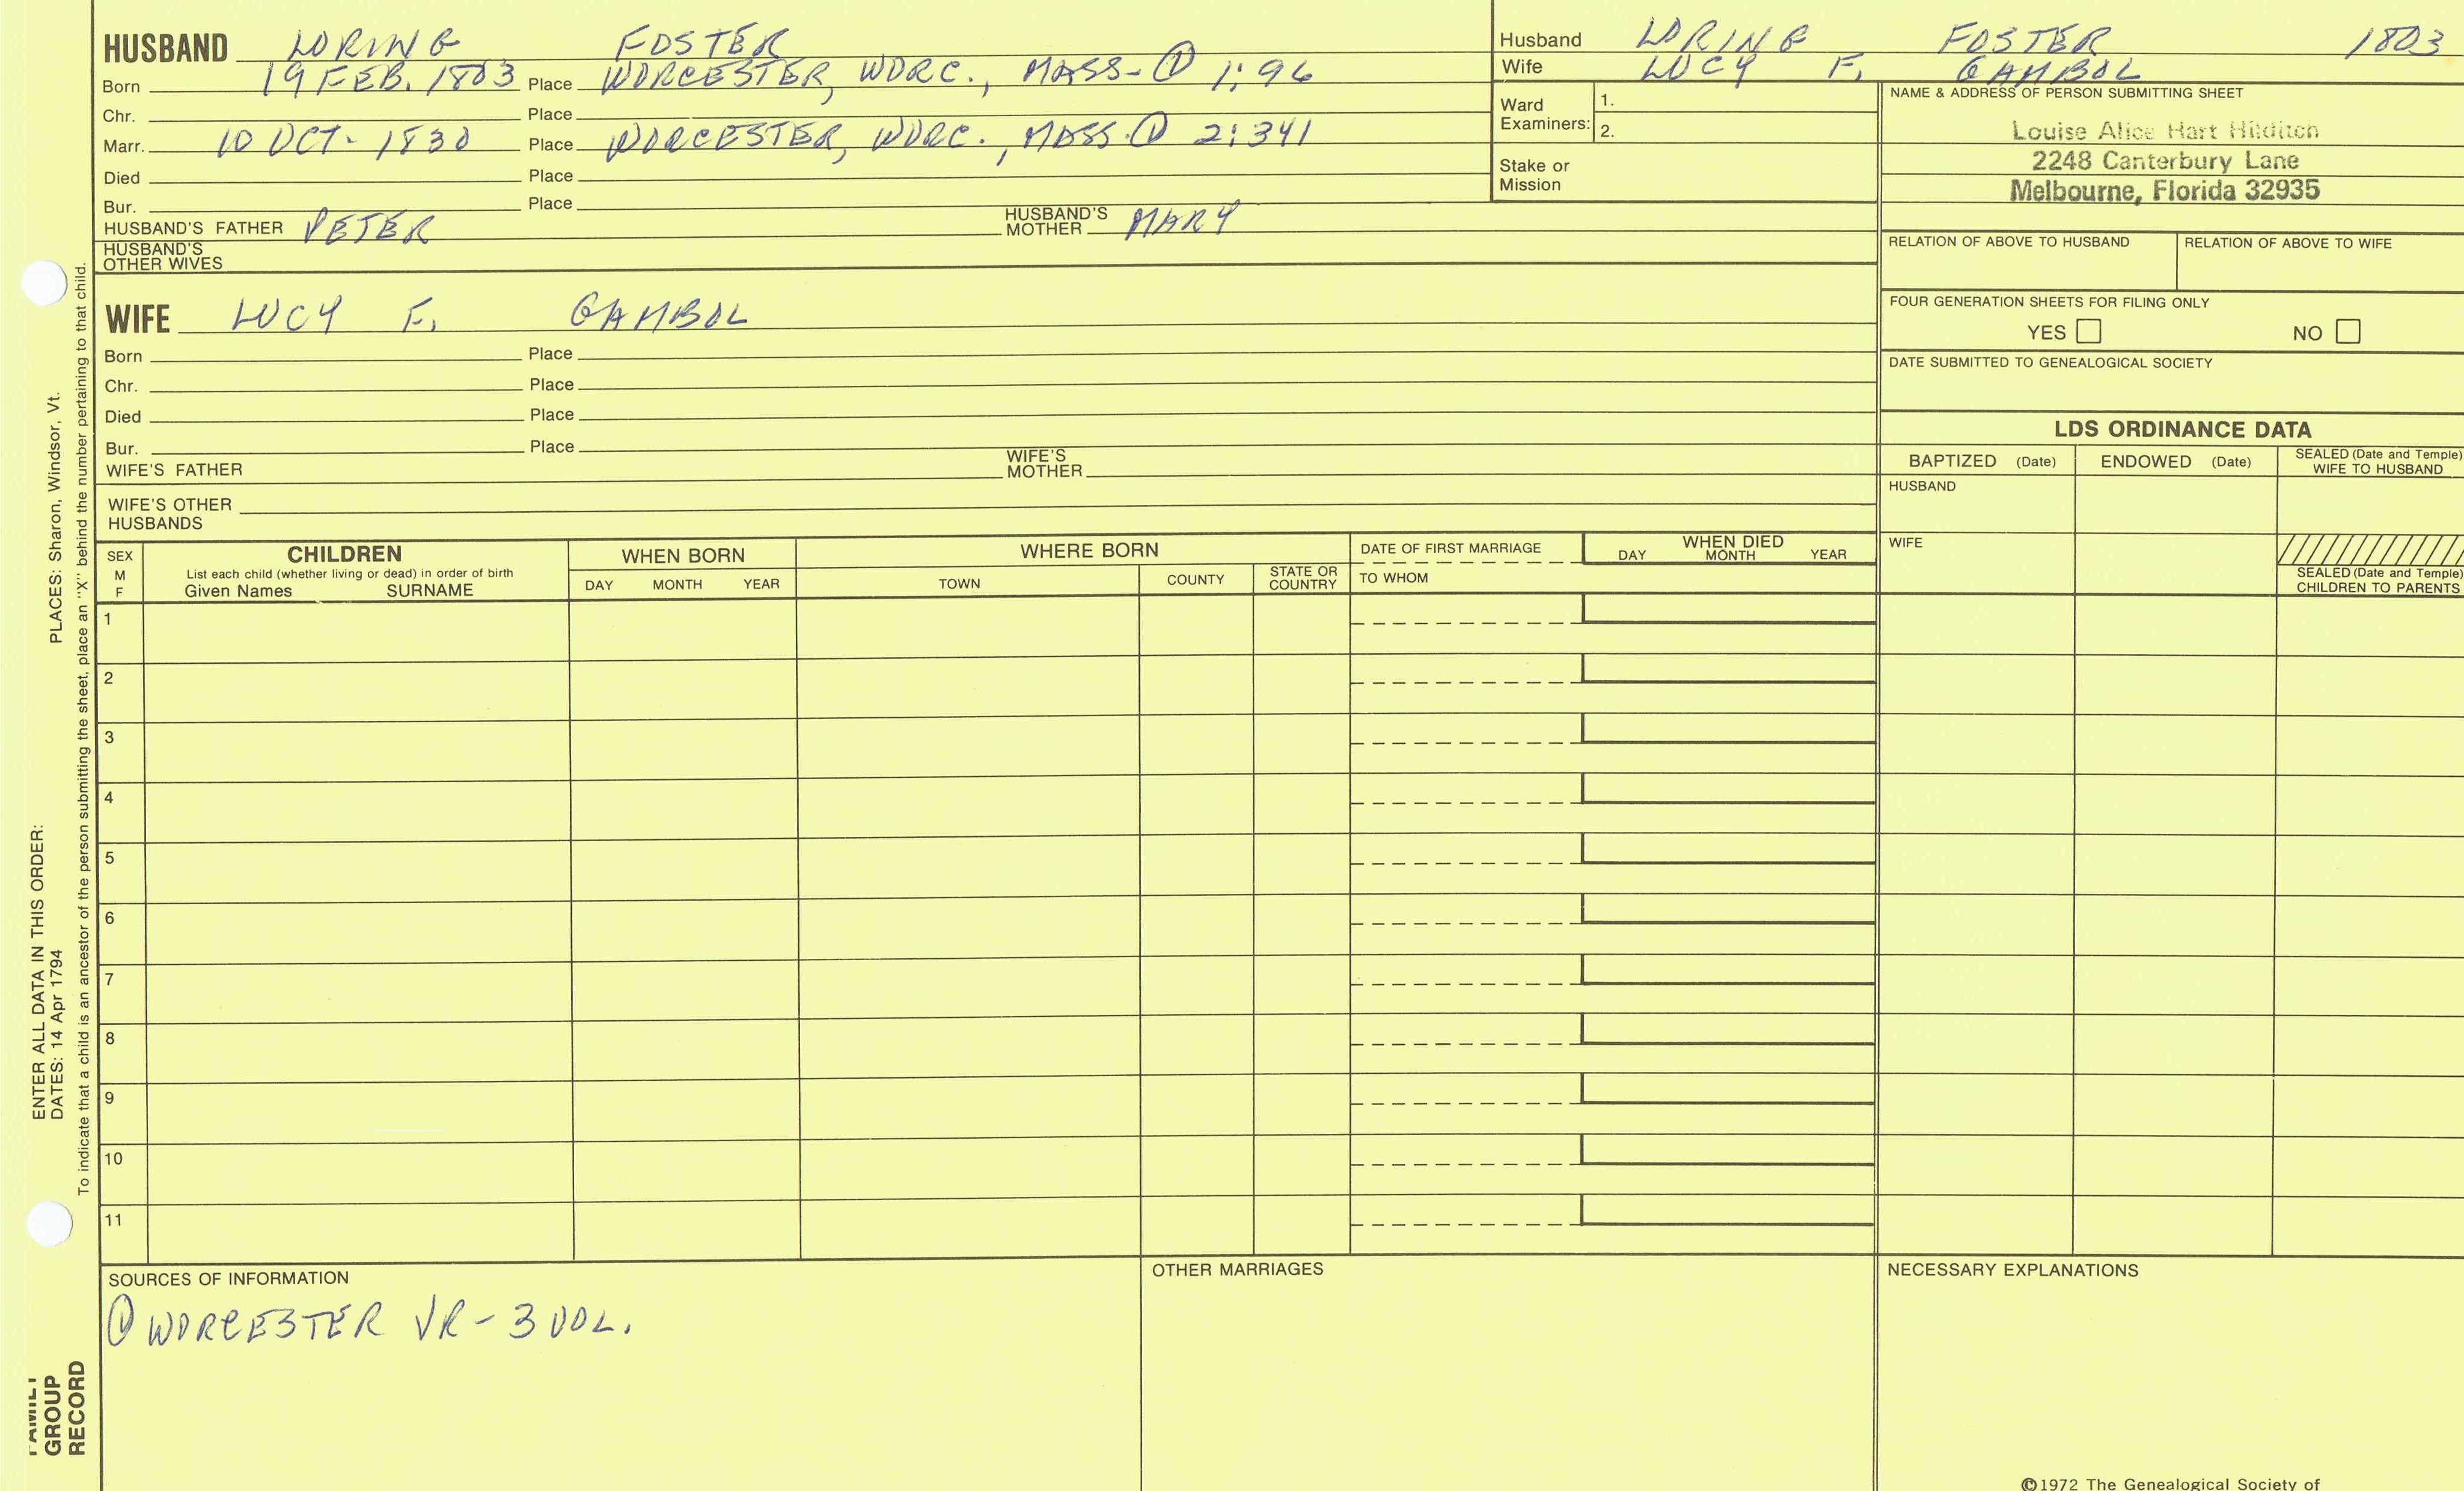 HUSBAND LORING FOSTER
Born 19 FEB. 1803 Place WORCESTER, WORC., MASS- ① 1:96
Chr. Place
Marr. 10 OCT- 1830 Place WORCESTER, WORC., MASS. ① 2:341
Died Place
Bur. Place
HUSBAND'S FATHER PETER HUSBAND'S MOTHER MARY
HUSBAND'S OTHER WIVES
Husband LORING FOSTER 1803
Wife LUCY F. GAMBOL
Ward Examiners: 1.
2.
Stake or Mission
NAME & ADDRESS OF PERSON SUBMITTING SHEET
Louise Alice Hart Hilditch
2248 Canterbury Lane
Melbourne, Florida 32935
RELATION OF ABOVE TO HUSBAND RELATION OF ABOVE TO WIFE
FOUR GENERATION SHEETS FOR FILING ONLY
YES NO
DATE SUBMITTED TO GENEALOGICAL SOCIETY
WIFE LUCY F. GAMBOL
Born Place
Chr. Place
Died Place
Bur. Place
WIFE'S FATHER WIFE'S MOTHER
WIFE'S OTHER HUSBANDS
LDS ORDINANCE DATA
BAPTIZED (Date) ENDOWED (Date) SEALED (Date and Temple) WIFE TO HUSBAND
HUSBAND
WIFE
SEALED (Date and Temple) CHILDREN TO PARENTS
SEX M F
CHILDREN
List each child (whether living or dead) in order of birth
Given Names SURNAME
WHEN BORN
DAY MONTH YEAR
WHERE BORN
TOWN COUNTY STATE OR COUNTRY
DATE OF FIRST MARRIAGE
TO WHOM
WHEN DIED
DAY MONTH YEAR
1
2
3
4
5
6
7
8
9
10
11
SOURCES OF INFORMATION
① WORCESTER VR- 3 VOL.
OTHER MARRIAGES
NECESSARY EXPLANATIONS
©1972 The Genealogical Society of
ENTER ALL DATA IN THIS ORDER:
DATES: 14 Apr 1794 PLACES: Sharon, Windsor, Vt.
To indicate that a child is an ancestor of the person submitting the sheet, place an "X" behind the number pertaining to that child.
FAMILY
GROUP
RECORD